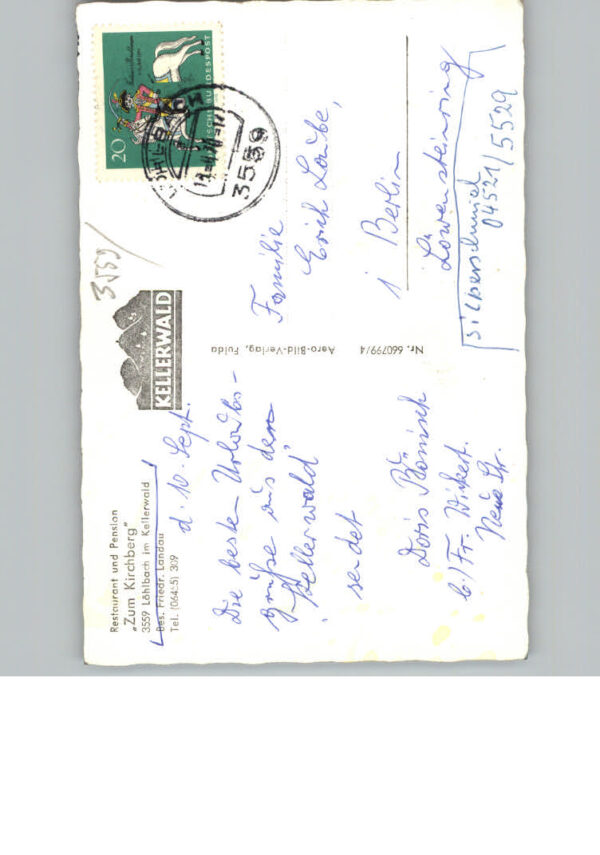 Restaurant und Pension
„Zum Kirchberg"
3559 Löhlbach im Kellerwald
Bes. Friedr. Landau
Tel. (06455) 309
KELLERWALD
3559
d. 10. Sept.
Die besten Urlaubs-
grüße aus dem
"Kellerwald"
sendet
Doris Bönisch
b./Fr. Wickert.
Neue Str.
Aero-Bild-Verlag, Fulda
Nr. 660799/4
20
DEUTSCHE BUNDESPOST
3559
Familie
Erich Laube,
1 Berlin
Löwensteinring
Silberschmied
04521/5529